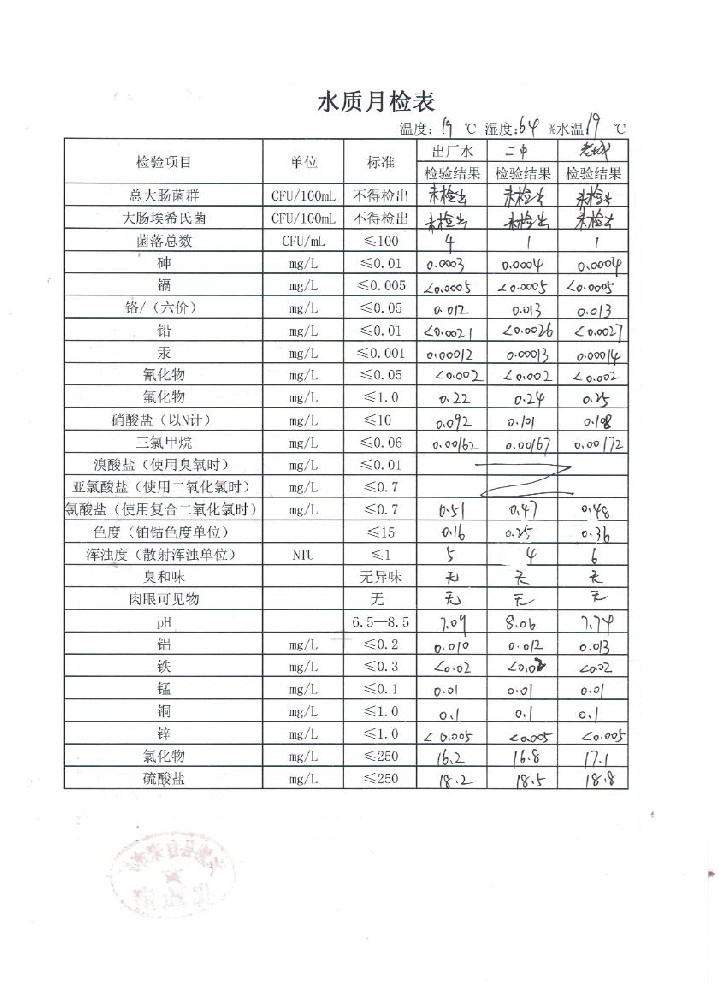 水质月检表
温度: 19 ℃ 湿度:64 %水温19 ℃
检验项目 单位 标准 出厂水 二中 老城
检验结果 检验结果 检验结果
总大肠菌群 CFU/100mL 不得检出 未检出 未检出 未检出
大肠埃希氏菌 CFU/100mL 不得检出 未检出 未检出 未检出
菌落总数 CFU/mL ≤100 4 1 1
砷 mg/L ≤0.01 0.0003 0.0004 0.0004
镉 mg/L ≤0.005 <0.0005 <0.0005 <0.0005
铬/（六价） mg/L ≤0.05 0.012 0.013 0.013
铅 mg/L ≤0.01 <0.0021 <0.0026 <0.0027
汞 mg/L ≤0.001 0.00012 0.00013 0.00014
氰化物 mg/L ≤0.05 <0.002 <0.002 <0.002
氟化物 mg/L ≤1.0 0.22 0.24 0.25
硝酸盐（以N计） mg/L ≤10 0.092 0.101 0.108
三氯甲烷 mg/L ≤0.06 0.00162 0.00167 0.00172
溴酸盐（使用臭氧时） mg/L ≤0.01
亚氯酸盐（使用二氧化氯时） mg/L ≤0.7
氯酸盐（使用复合二氧化氯时） mg/L ≤0.7 0.51 0.47 0.48
色度（铂钴色度单位） ≤15 0.16 0.25 0.36
浑浊度（散射浑浊单位） NTU ≤1 5 4 6
臭和味 无异味 无 无 无
肉眼可见物 无 无 无 无
pH 6.5—8.5 7.09 8.06 7.74
铝 mg/L ≤0.2 0.010 0.012 0.013
铁 mg/L ≤0.3 <0.02 <0.02 <002
锰 mg/L ≤0.1 0.01 0.01 0.01
铜 mg/L ≤1.0 0.1 0.1 0.1
锌 mg/L ≤1.0 <0.005 <0.005 <0.005
氯化物 mg/L ≤250 16.2 16.8 17.1
硫酸盐 mg/L ≤250 18.2 18.5 18.8